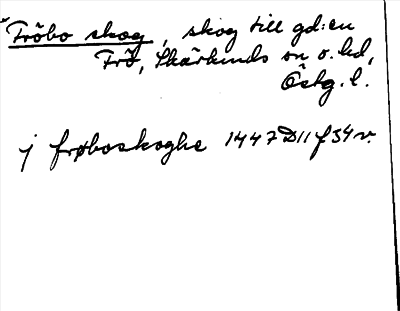 Fröbo skog, skog till gd:en
Frö, Skärkinds sn o. hd,
Östg. l.
j frøboskoghe 1447 D11 f 54 v.